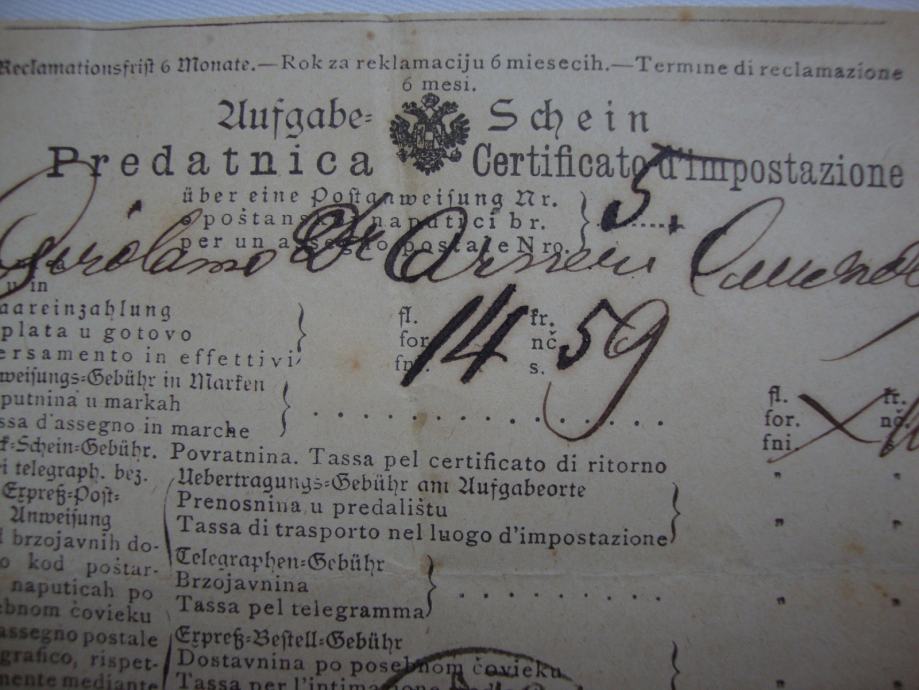 Reclamationsfrist 6 Monate.—Rok za reklamaciju 6 miesecih.—Termine di reclamazione
6 mesi.
Aufgabe-Schein
Predatnica Certificato d'impostazione
über eine Postanweisung Nr.
o poštanskoj naputici br. 5.
per un assegno postale Nro.
Girolamo Dr
u in
aareinzahlung fl. kr.
plata u gotovo for. 14 nč. 59
ersamento in effettivi fni. s.
weisungs-Gebühr in Marken fl. kr.
putnina u markah for. nč.
ssa d'assegno in marche fni
k-Schein-Gebühr. Povratnina. Tassa pel certificato di ritorno
i telegraph. bez. Uebertragungs-Gebühr am Aufgabeorte
Expreß-Post- Prenosnina u predalištu
Anweisung Tassa di trasporto nel luogo d'impostazione
d brzojavnih do- Telegraphen-Gebühr
o kod poštar- Brzojavnina
naputicah po Tassa pel telegramma
ebnom čovieku
assegno postale Expreß-Bestell-Gebühr
grafico, rispet- Dostavnina po posebnom čovieku
mente mediante Tassa per l'intimazione